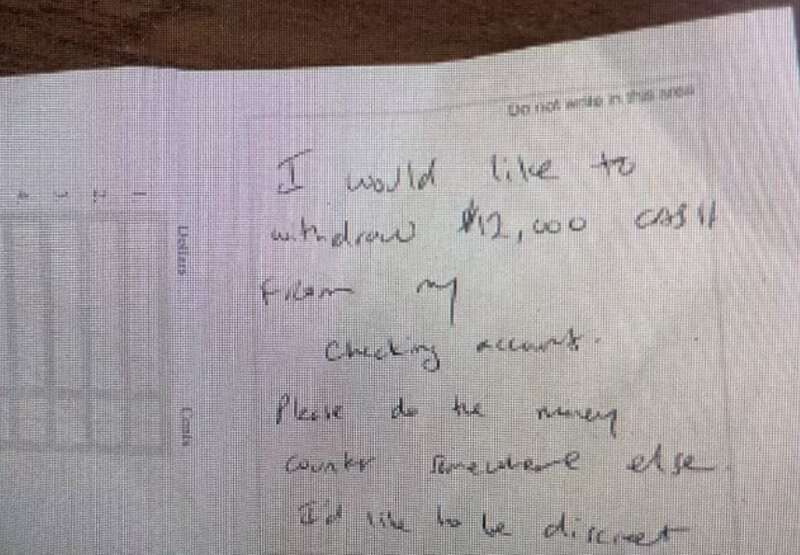 Do not write in this area
I would like to
withdraw $12,000 CASH
From my
Checking account.
Please do the money
counter somewhere else.
I'd like to be discreet
Dollars
Cents